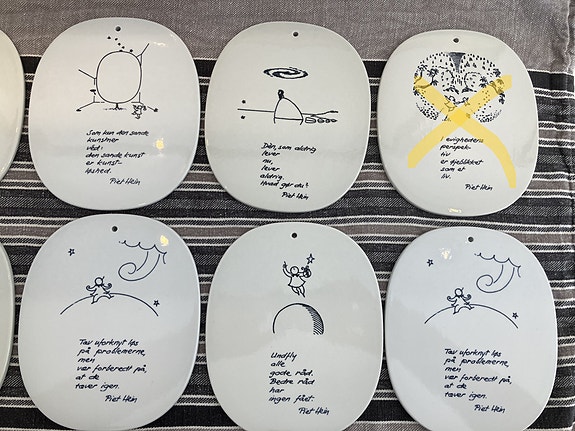 Som kun den sande
kunstner
véd:
den sande kunst
er kunst-
løshed.
Piet Hein
Den, som aldrig
lever
nu,
lever
aldrig.
Hvad gør du?
Piet Hein
I evighedens
perspek-
tiv
er øjeblikket
som et
liv.
Piet Hein
Tag uforknyt løs
på problemerne,
men
vær forberedt på,
at de
tager igen.
Piet Hein
Undfly
alle
gode råd.
Bedre råd
har
ingen fået.
Piet Hein
Tag uforknyt løs
på problemerne,
men
vær forberedt på,
at de
tager igen.
Piet Hein